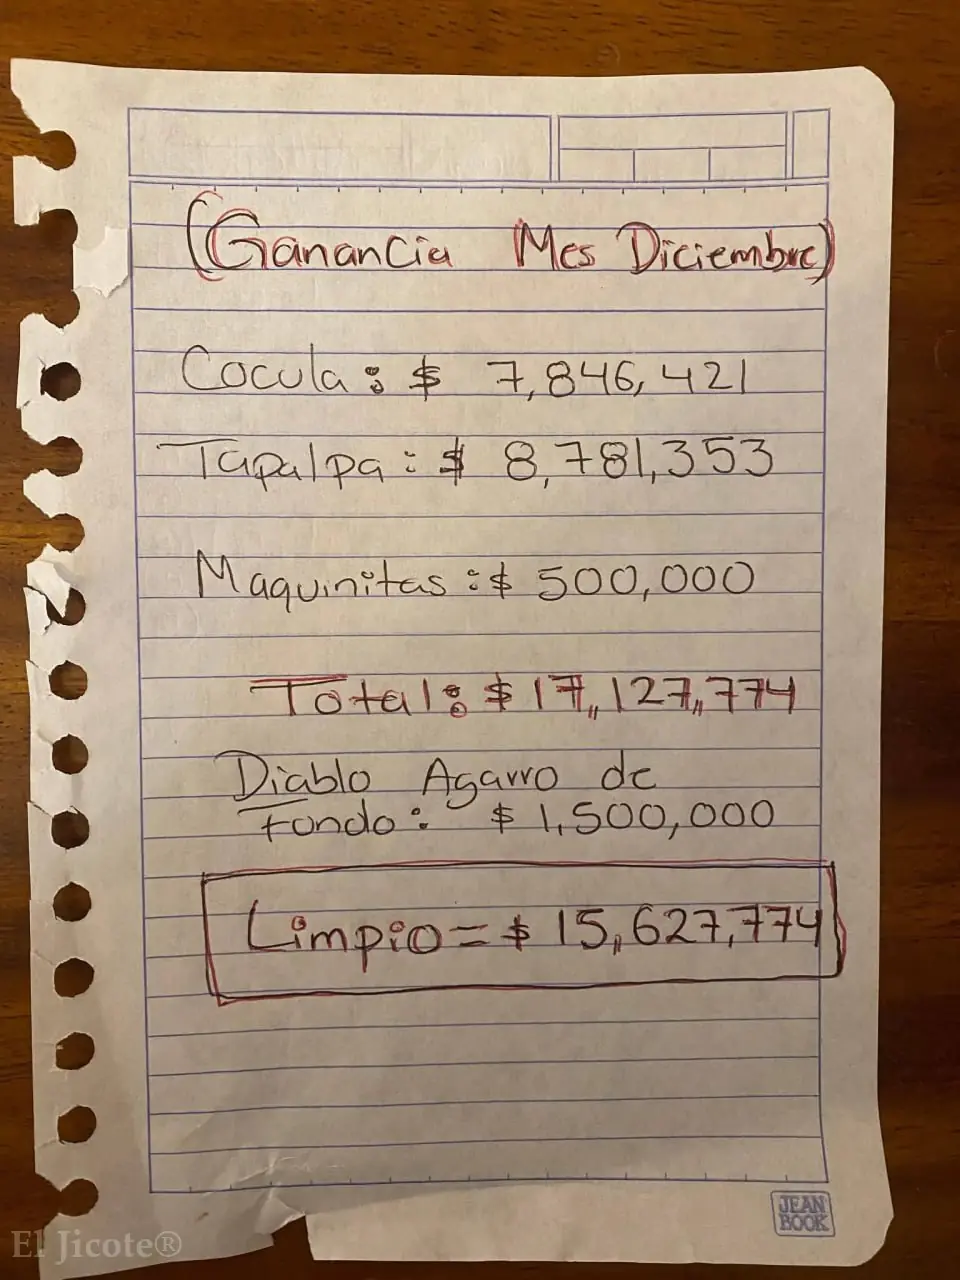 (Ganancia Mes Diciembre)
Cocula: $ 7,846,421
Tapalpa: $ 8,781,353
Maquinitas: $ 500,000
Total: $ 17,,127,,774
Diablo Agarro de
Fondo: $ 1,500,000
Limpio = $ 15,627,774
JEAN
BOOK
El Jicote®